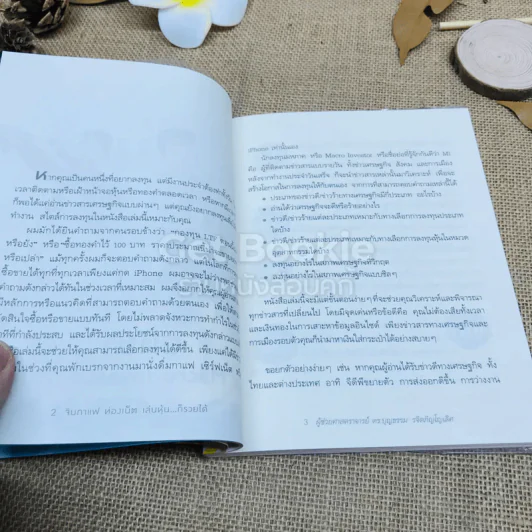 หากคุณเป็นคนหนึ่งที่อยากลงทุน แต่มีงานประจำต้อง
เวลาติดตามหรือเฝ้าหน้าจอหุ้นหรือทองคำตลอดเวลา
ก็พอได้แค่อ่านข่าวสารเศรษฐกิจแบบผ่านๆ แต่คุณยังอยากลงทุน
ทำงาน สไตล์การลงทุนในหนังสือเล่มนี้เหมาะกับคุณ
ผมมักได้ยินคำถามจากคนรอบข้างว่า “กองทุน LTF
หรือยัง” หรือ “ซื้อทองคำไว้ 100 บาท ราคาประมาณนี้
หรือเปล่า” แม้ทุกครั้งผมก็จะตอบคำถามดังกล่าว แต่ในโลกที่
ซื้อขายได้ทุกที่ทุกเวลาเพียงแค่กด iPhone ผมอาจจะไม่ว่าง
คำถามดังกล่าวได้ทันในช่วงเวลาที่เหมาะสม ผมจึง
มีหลักการหรือแนวคิดที่สามารถตอบคำถามด้วยตนเอง
ตัดสินใจซื้อหรือขายแบบทันที โดยไม่พลาดจังหวะการทำกำไร
ทีที่กำลังประสบ และได้รับผลประโยชน์จากการลงทุนดังกล่าว
เล่มนี้จะช่วยให้คุณสามารถเลือกลงทุนได้ดีขึ้น เพียงแค่ได้
ในช่วงที่คุณพักเบรกจากงานมานั่งดื่มกาแฟ เซิร์ฟเน็ต
2 จิบกาแฟ ท่องเน็ต เล่นหุ้น...ก็รวยได้
iPhone เท่านั้นเอง
นักลงทุนมหภาค หรือ Macro Investor หรือชื่อย่อที่รู้จักกันดีว่า
คือ ผู้ที่ติดตามข่าวสารแบบรายวัน ทั้งข่าวเศรษฐกิจ สังคม และการเมือง
หลังจากทำงานประจำวันเสร็จ ก็จะนำข่าวสารเหล่านั้นมาวิเคราะห์ เพื่อจะ
สร้างโอกาสในการลงทุนให้กับตนเอง จากการที่สามารถตอบคำถามเหล่านี้ได้
• ประเภทของข่าวดีข่าวร้ายทางเศรษฐกิจมีกี่ประเภท อะไรบ้าง
• อ่านได้ว่าเศรษฐกิจจะดีหรือร้ายอย่างไร
• ข่าวดีข่าวร้ายแต่ละประเภทเหมาะกับทางเลือกการลงทุนประเภท
ใดบ้าง
• ข่าวดีข่าวร้ายแต่ละประเภทเหมาะกับทางเลือกการลงทุนหุ้นในหมวด
อุตสาหกรรมใดบ้าง
• ลงทุนอย่างไรในสภาพเศรษฐกิจที่วิกฤต
• ลงทุนอย่างไรในสภาพเศรษฐกิจแบบชิลๆ
หนังสือเล่มนี้จะมีเนื้อหาขั้นตอนง่ายๆ ที่จะช่วยคุณวิเคราะห์และพิจารณา
ทุกข่าวสารที่เปลี่ยนไป โดยมีจุดเด่นหรือข้อดีคือ คุณไม่ต้องเสียทั้งเวลา
และเงินทองในการเสาะหาข้อมูลอินไซด์ เพียงข่าวสารทางเศรษฐกิจและ
การเมืองรอบตัวคุณก็นำมาหาเงินใส่กระเป๋าได้อย่างสบายๆ
ขอยกตัวอย่างง่ายๆ เช่น หากคุณผู้อ่านได้รับข่าวดีทางเศรษฐกิจ ทั้ง
ไทยและต่างประเทศ อาทิ จีดีพีขยายตัว การส่งออกดีขึ้น การว่างงาน
3 ผู้ช่วยศาสตราจารย์ ดร.บุญธรรม รจิตภิญโญเลิศ